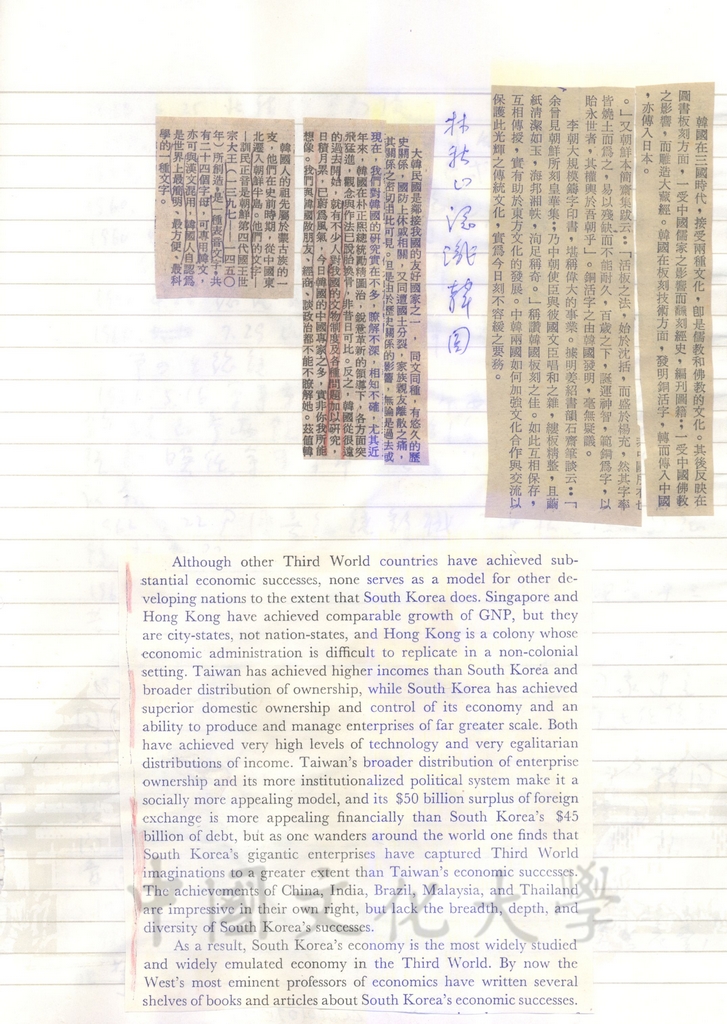 韓國在三國時代，接受兩種文化，卽是儒教和佛教的文化。其後反映在
圖書板刻方面，一受中國儒家之影響而翻刻經史，編刊圖籍；一受中國佛教
之影響，而雕造大藏經。韓國在板刻技術方面，發明銅活字，轉而傳入中國
，亦傳入日本。
。」又朝鮮本簡齋集跋云：「活板之法，始於沈括，而盛於楊克，然其字學
皆燒土而爲之，易以殘缺而不能耐久，百歲之下，誕運神智，範銅爲字，以
貽永世者，其權輿於吾朝乎」。銅活字之由韓國發明，毫無疑議。
李朝大規模鑄字印書，堪稱偉大的事業。據明姜紹書韻石齋筆談云：「
余曾見朝鮮所刻皇華集：乃中朝使臣與彼國文臣唱和之雜，繕板精整，且繭
紙清潔如玉，海邦湘帙，洵足稱奇。」稱讚韓國板刻之佳。如此互相保存，
互相傳授，實有助於東方文化的發展。中韓兩國如何加強文化合作與交流以
保護此光輝之傳統文化，實爲今日刻不容緩之要務。
林秋山漫談韓國
大韓民國是鄰接我國的友好國家之一，同文同種，有悠久的歷
史關係，國防上休戚相關，又同遭國土分裂，家族親友離散之痛，
其關係之密切由此可見。但是由於歷史關係的影響，無論是過去或
現在，我們對韓國的研究實在不多，瞭解不深，相知不確，尤其近
年來，韓國在朴正熙總統勵精圖治，銳意革新的領導下，各方面突
飛猛進，觀念與作法已脫胎換骨，非昔日可比。反之，韓國從很遠
的過去開始，就有不少人對我國的文物制度及各種問題加以研究，
日積月累，已蔚爲風氣，今日韓國的中國專家之多，實非你我所能
想像。我們與韓國做朋友、經商、談政治都不能不瞭解她。茲値韓
韓國人的祖先屬於蒙古族的一
支，他們在史前時期，從中國東
北遷入朝鮮半島。他們的文字—
—訓民正音是朝鮮第四代國王世
宗大王（一三九七——一四五〇
年）所創造，是一種表音文字，共
有二十四個字母，可專用韓文，
亦可與漢文混用，韓國人自認爲
是世界上最簡明、最方便、最科
學的一種文字。
Although other Third World countries have achieved sub-
stantial economic successes, none serves as a model for other de-
veloping nations to the extent that South Korea does. Singapore and
Hong Kong have achieved comparable growth of GNP, but they
are city-states, not nation-states, and Hong Kong is a colony whose
economic administration is difficult to replicate in a non-colonial
setting. Taiwan has achieved higher incomes than South Korea and
broader distribution of ownership, while South Korea has achieved
superior domestic ownership and control of its economy and an
ability to produce and manage enterprises of far greater scale. Both
have achieved very high levels of technology and very egalitarian
distributions of income. Taiwan's broader distribution of enterprise
ownership and its more institutionalized political system make it a
socially more appealing model, and its $50 billion surplus of foreign
exchange is more appealing financially than South Korea's $45
billion of debt, but as one wanders around the world one finds that
South Korea's gigantic enterprises have captured Third World
imaginations to a greater extent than Taiwan's economic successes.
The achievements of China, India, Brazil, Malaysia, and Thailand
are impressive in their own right, but lack the breadth, depth, and
diversity of South Korea's successes.
As a result, South Korea's economy is the most widely studied
and widely emulated economy in the Third World. By now the
West's most eminent professors of economics have written several
shelves of books and articles about South Korea's economic successes.
中國文化大學